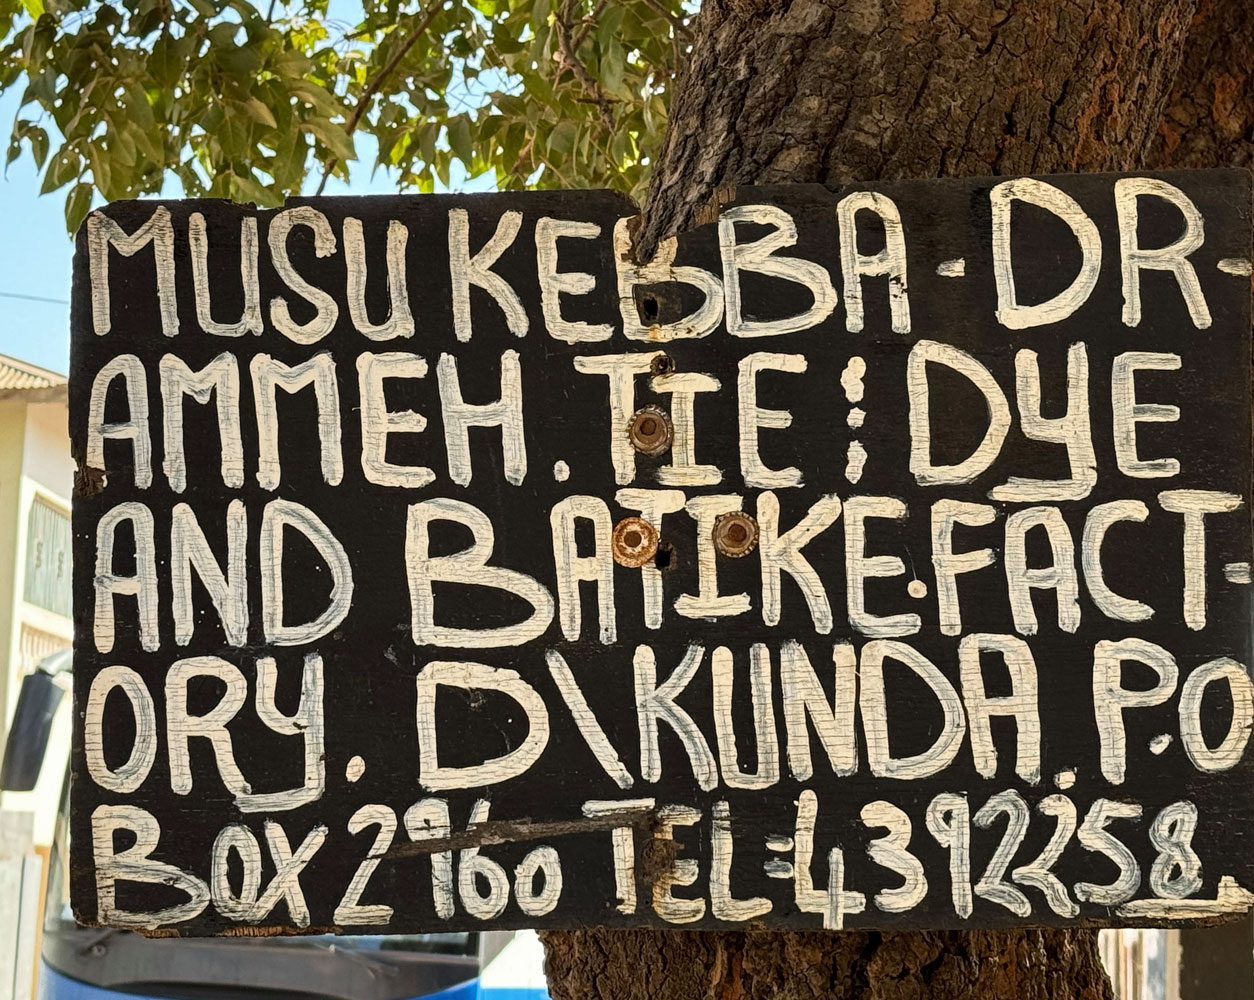 MUSU KEBBA - DR-
AMMEH. TIE : DYE
AND BATIKE. FACT-
ORY. D\KUNDA, P.O
BOX 2960 TEL:4392258